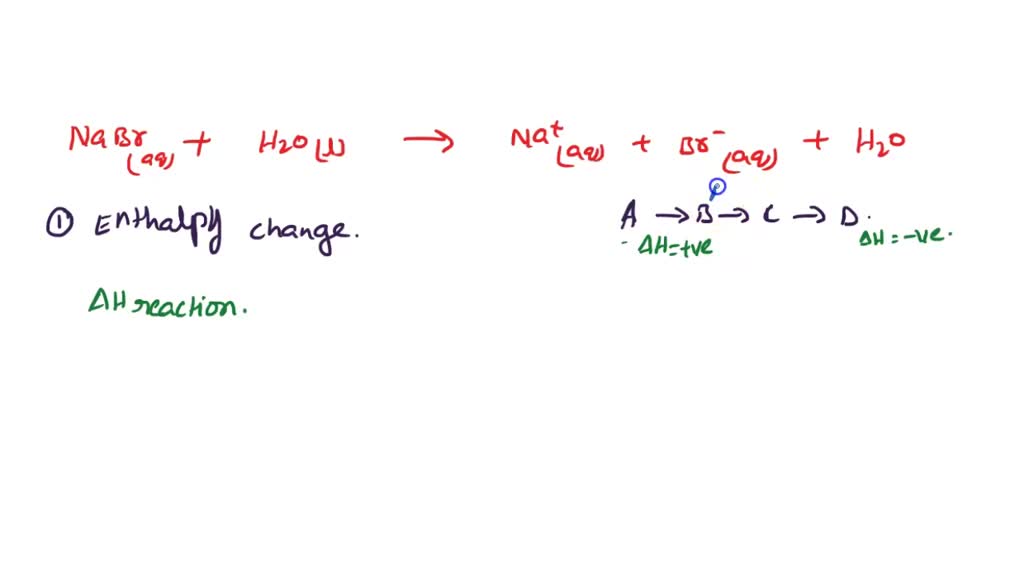 NaBr(aq) + H2O(l) → Na+(aq) + Br-(aq) + H2O
① Enthalpy change.
A → B → C → D.
ΔH=+ve ΔH=-ve.
ΔH reaction.